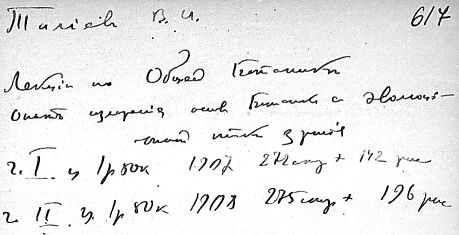 Талиев В. И. 617
Лекции по Общей Ботанике
Опыт изучения основ Ботаники с эволюци-
онной точки зрения
ч. I. ц. 1р 50к 1907 272 стр + 142 рис
ч. II ц. 1р 50к 1908 275 стр + 196 рис